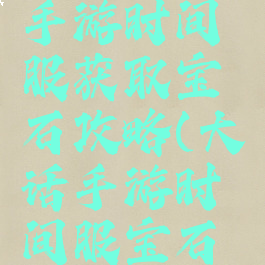 手游时间
服获取宝
石攻略(大
话手游时
间服宝石